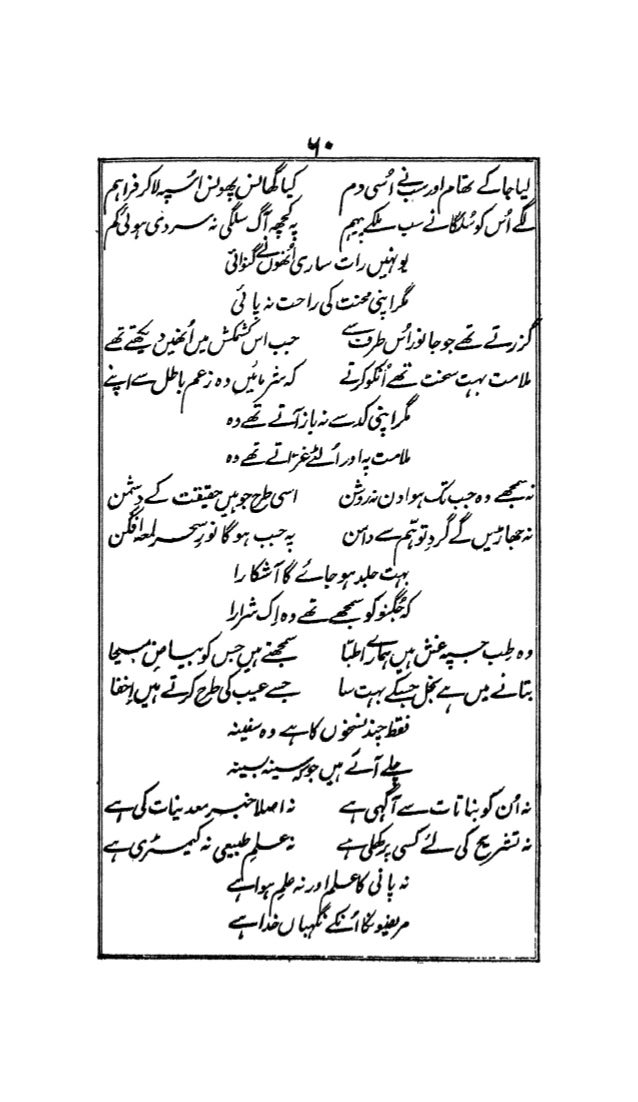 ۶۰
لیا جا کے تھام اور سب نے اُسی دم کیا گھانس پھونس اسپہ لا کر فراہم
لگے اُس کو سُلگانے سب ملکے پیہم پہ کچھ آگ سلگی نہ سردی ہوئی کم
یونہیں رات ساری اُنھوں نے گنوائی
مگر اپنی محنت کی راحت نہ پائی
گزرتے تھے جو جانور اُس طرف سے جب اس کشمکش میں اُنھیں دیکھتے تھے
ملامت بہت سخت تھے اُنکو کرتے کہ شرمائیں وہ زعم باطل سے اپنے
مگر اپنی کد سے نہ باز آتے تھے وہ
ملامت پہ اور اُلٹے غرّاتے تھے وہ
نہ سمجھے وہ جب تک ہوا دن نہ روشن اسی طرح جو ہیں حقیقت کے دشمن
نہ جھاڑیں گے گرد توہّم سے دامن پہ جب ہوگا نورِ سحر لمعہ افگن
بہت جلد ہو جائے گا آشکارا
کہ جُگنو کو سمجھے تھے وہ اِک شرارا
وہ طِب جسپہ غش ہیں ہمارے اطبّا سمجھتے ہیں جس کو بیاضِ مسیحا
بتانے میں ہے بخل جسکے بہت سا جسے عیب کی طرح کرتے ہیں اِخفا
فقط چند نسخوں کا ہے وہ سفینہ
چلے آئے ہیں جو کہ سینہ بسینہ
نہ اُن کو نباتات سے آگہی ہے نہ اصلا خبر معدنیات کی ہے
نہ تشریح کی لئے کسی پر کھلی ہے نہ علمِ طبیعی نہ کیمسٹری ہے
نہ پانی کا علم اور نہ علم ہوا ہے
مریضونکا اُنکے نگہباں خدا ہے